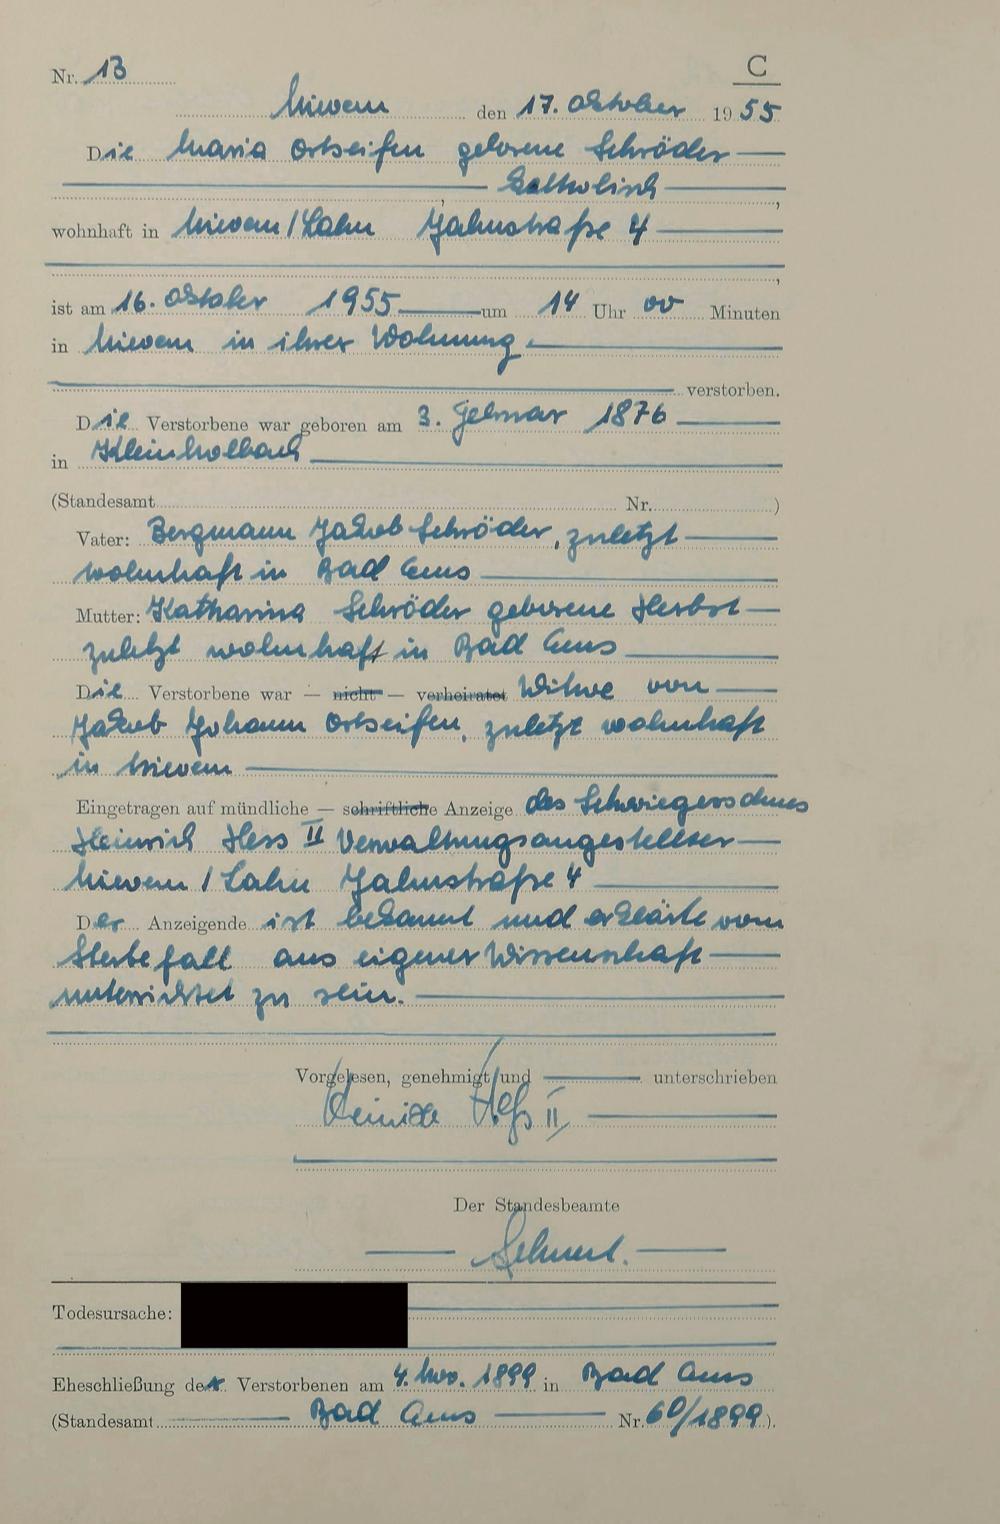 Nr. 13 C
Nievern den 17. Oktober 1955
Die Maria Ortseifen geborene Schröder
katholisch ,
wohnhaft in Nievern/Lahn Jahnstraße 4
,
ist am 16. Oktober 1955 um 14 Uhr 00 Minuten
in Nievern in ihrer Wohnung
verstorben.
Die Verstorbene war geboren am 3. Februar 1876
in Kleinholbach
(Standesamt Nr. )
Vater: Bergmann Jakob Schröder, zuletzt
wohnhaft in Bad Ems
Mutter: Katharina Schröder geborene Herbst
zuletzt wohnhaft in Bad Ems
Die Verstorbene war — nicht — verheiratet Witwe von
Jakob Johann Ortseifen, zuletzt wohnhaft
in Nievern
Eingetragen auf mündliche — schriftliche Anzeige des Schwiegersohnes
Heinrich Hess II Verwaltungsangestellter
Nievern/Lahn Jahnstraße 4
Der Anzeigende ist bekannt und erklärte vom
Sterbefall aus eigener Wissenschaft
unterrichtet zu sein.
Vorgelesen, genehmigt und unterschrieben
Heinrich Heß II
Der Standesbeamte
Todesursache:
Eheschließung der Verstorbenen am 4. Nov. 1899 in Bad Ems
(Standesamt Bad Ems Nr. 60/1899).